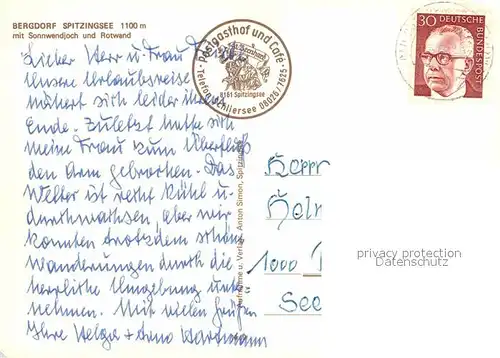 BERGDORF SPITZINGSEE 1100 m
mit Sonnwendjoch und Rotwand
Postgasthof und Café
8161 Spitzingsee
Telefon Schliersee 08026/7625
30 DEUTSCHE
BUNDESPOST
Lieber Herr u. Frau
Unsere Urlaubsreise
nähert sich leider ihrem
Ende. Zuletzt hatte sich
meine Frau zum Überfluß
den Arm gebrochen. Das
Wetter ist recht kühl u.
durchwachsen, aber wir
konnten trotzdem schöne
Wanderungen durch die
herrliche Umgebung unter-
nehmen. Mit vielen Grüßen
Ihre Helga + Arno Hartmann
u. Verlag: Anton Simon, Spitzingsee
Herr
1000
See
privacy protection
Datenschutz